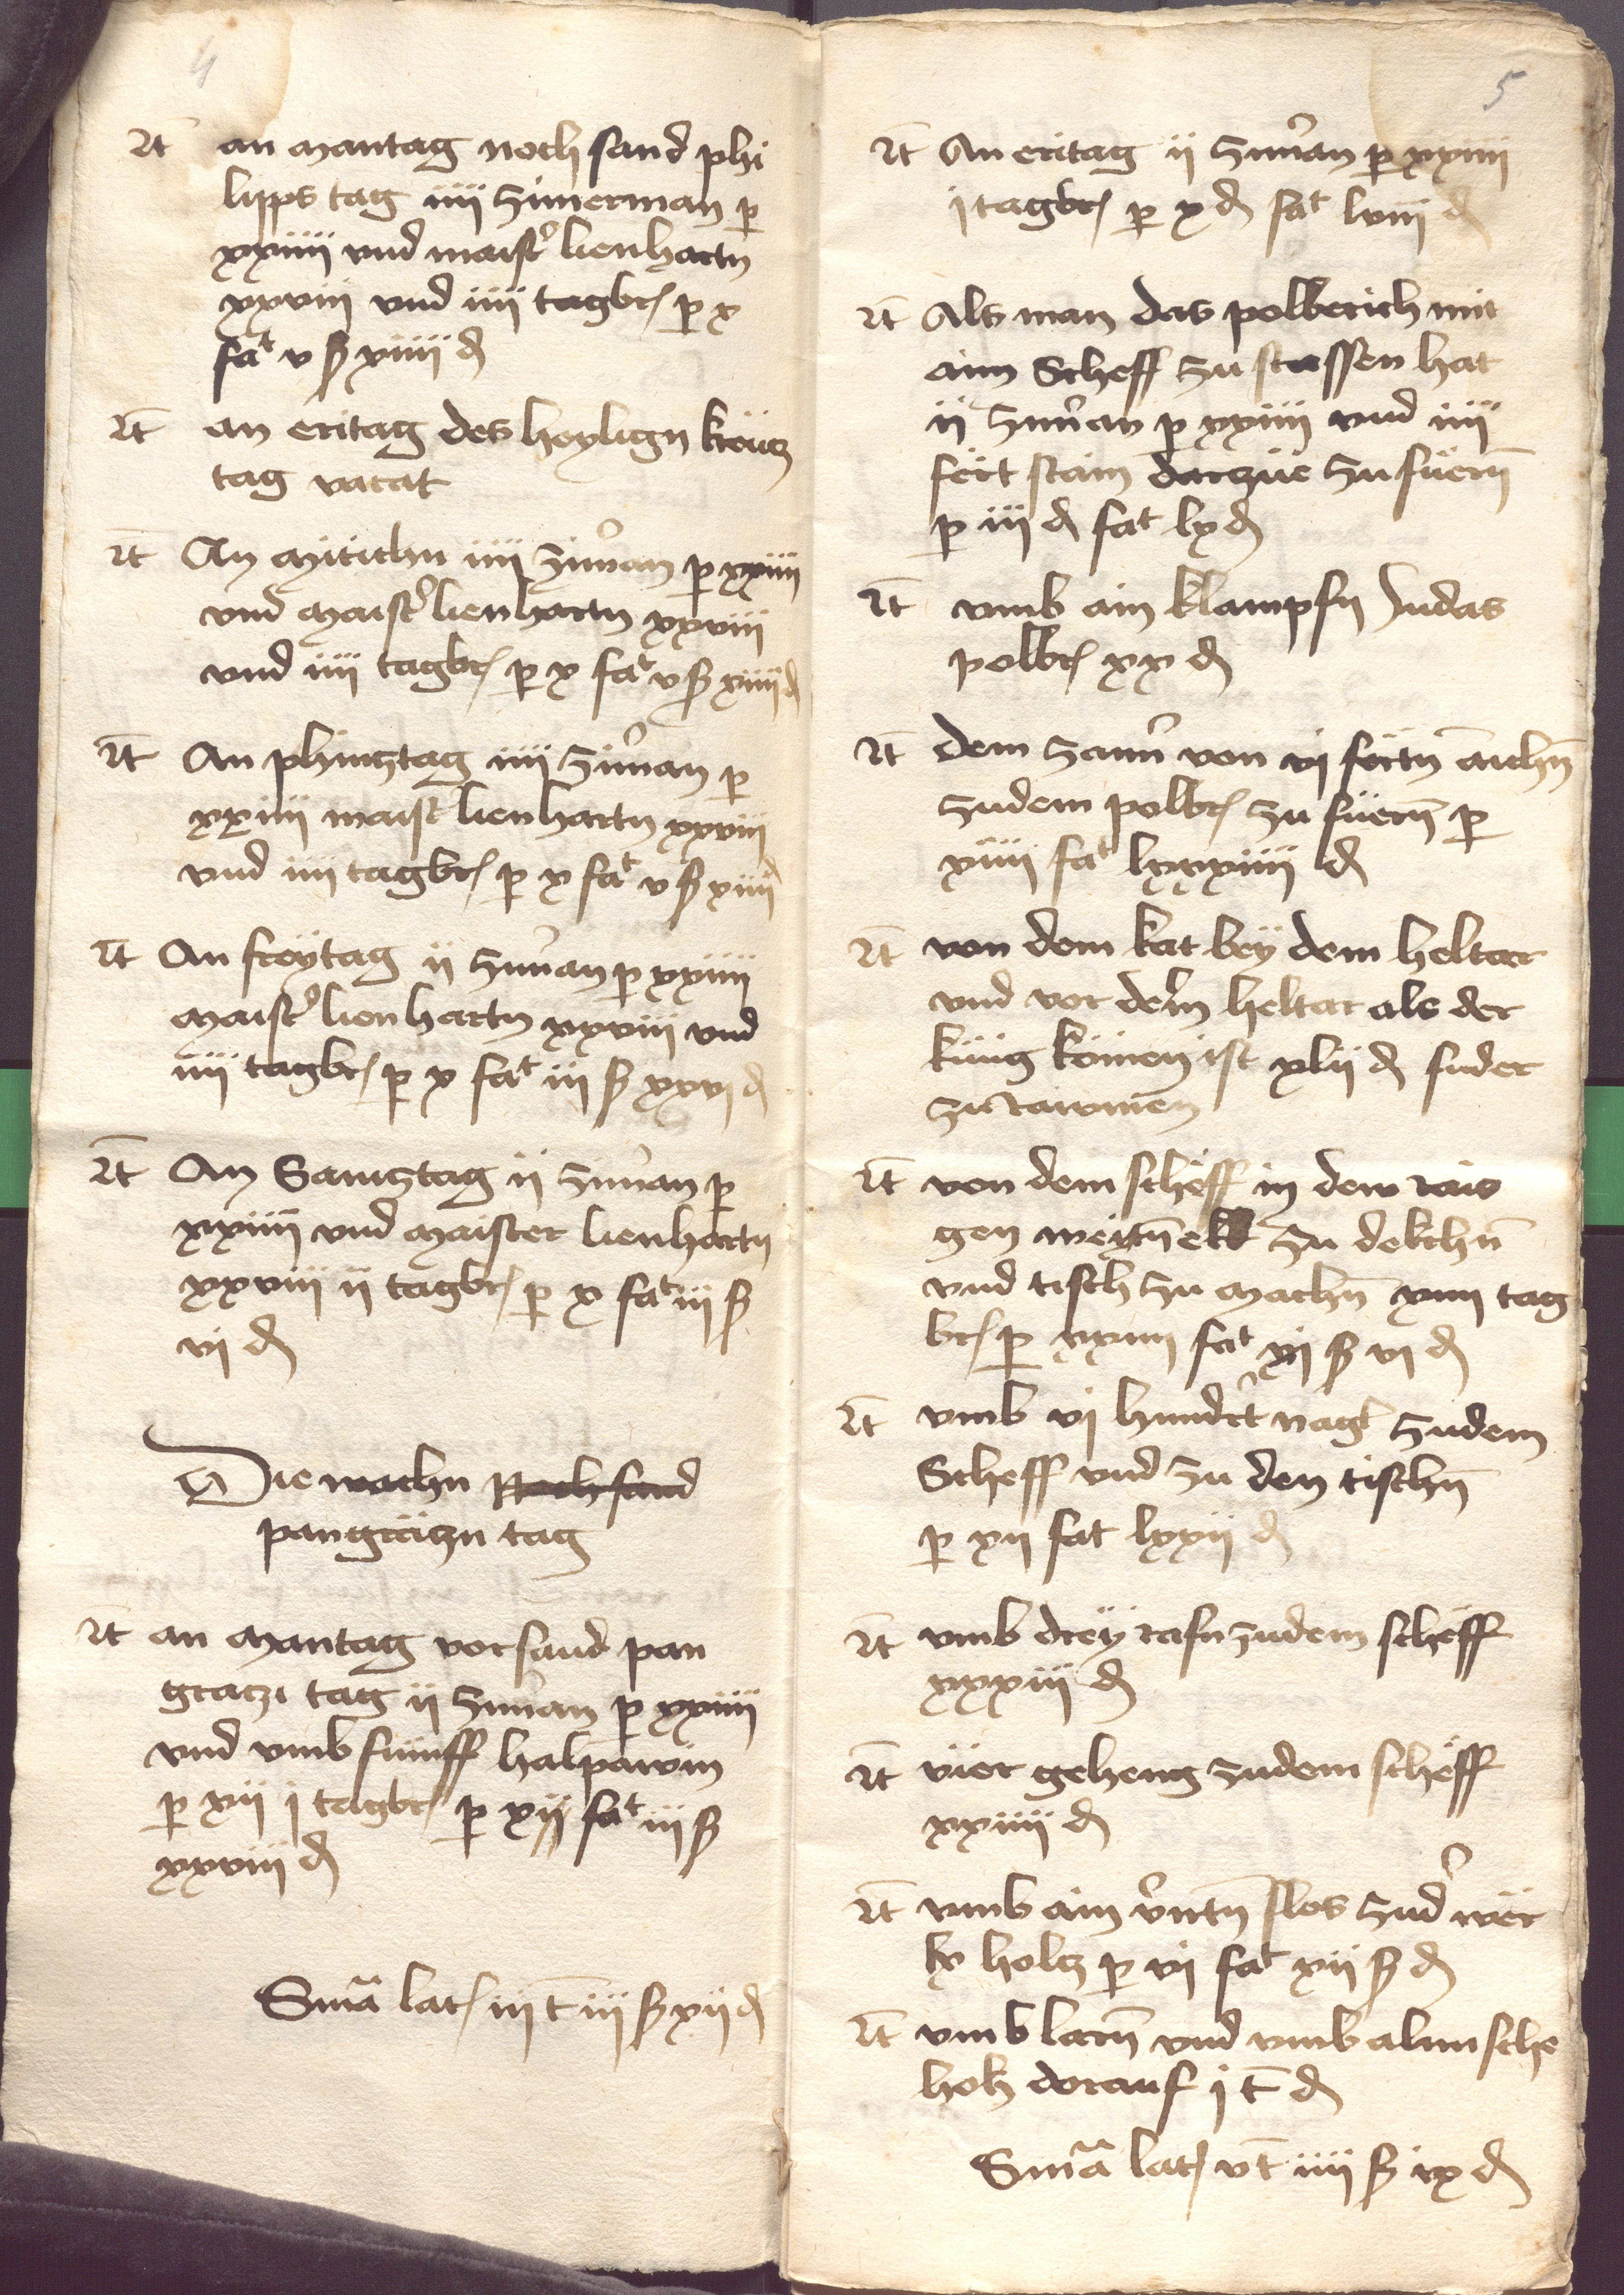 4
It an mantag noch sand phi
lipps tag iiii zimerman p
xxiiii vnd maistr lienhartn
xxviii vnd iiii tagbr p x
fat v ß xiiii d
It an eritag des heylign kreucz
tag vacat
It An mitichn iiii ziman p xxiiii
vnd maistr lienhartn xxviii
vnd iiii tagbr p x fat v ß xiiii d
It An phincztag iiii ziman p
xxiiii maist lienhartn xxviii
vnd iiii tagbr p x fat v ß xiiii d
It An freytag ii ziman p xxiiii
maistr lienhartn xxviii vnd
iiii tagbr p x fat iii ß xxvi d
It An Samcztag ii ziman p
xxiiii vnd maister lienhartn
xxviii ii tagbr p x fat iii ß
vi d
Die wochn Noch sand
pangräczn tag
It an mantag vor sand pan
graczi tag ii ziman p xxiiii
vnd vmb fumff halpawm
p xii i tagbr p xii fat iii ß
xxviii d
Sma lat iii t iii ß xii d
5
It An eritag ii ziman p xxiiii
i tagbr p x d fat lviii d
It Als man das polberich mit
aim Scheff zu stossen hat
ii ziman p xxiiii vnd iiii
fert stain darzue zu fuern
p iii d fat lx d
It vmb ain klampfn zu das
polbr xx d
It dem zaun von vi fertn aichn
zu dem polbr zu fuern p
xiiii fat lxxxiiii d
It von dem kat bey dem heltar
vnd vor dem heltar als der
kunig kömen ist xlii d fuder
zu rawmen
It von dem scheff in dem rais
gen weytnekk zu dekchn
vnd tisch zu machn xiiii tag
br p xxiiii fat xi ß vi d
It vmb vi hundert nagl zu dem
Scheff vnd zu den tischn
p xii fat lxxii d
It vmb drey rafn zu dem scheff
xxxiii d
It vier geheng zu dem scheff
xxiiii d
It vmb ain flos zu dr wer
ky holcz p vi fat xii ß d
It vmb larn vnd vmb
holcz dorauf i t d
Sma lat v t iiii ß ix d